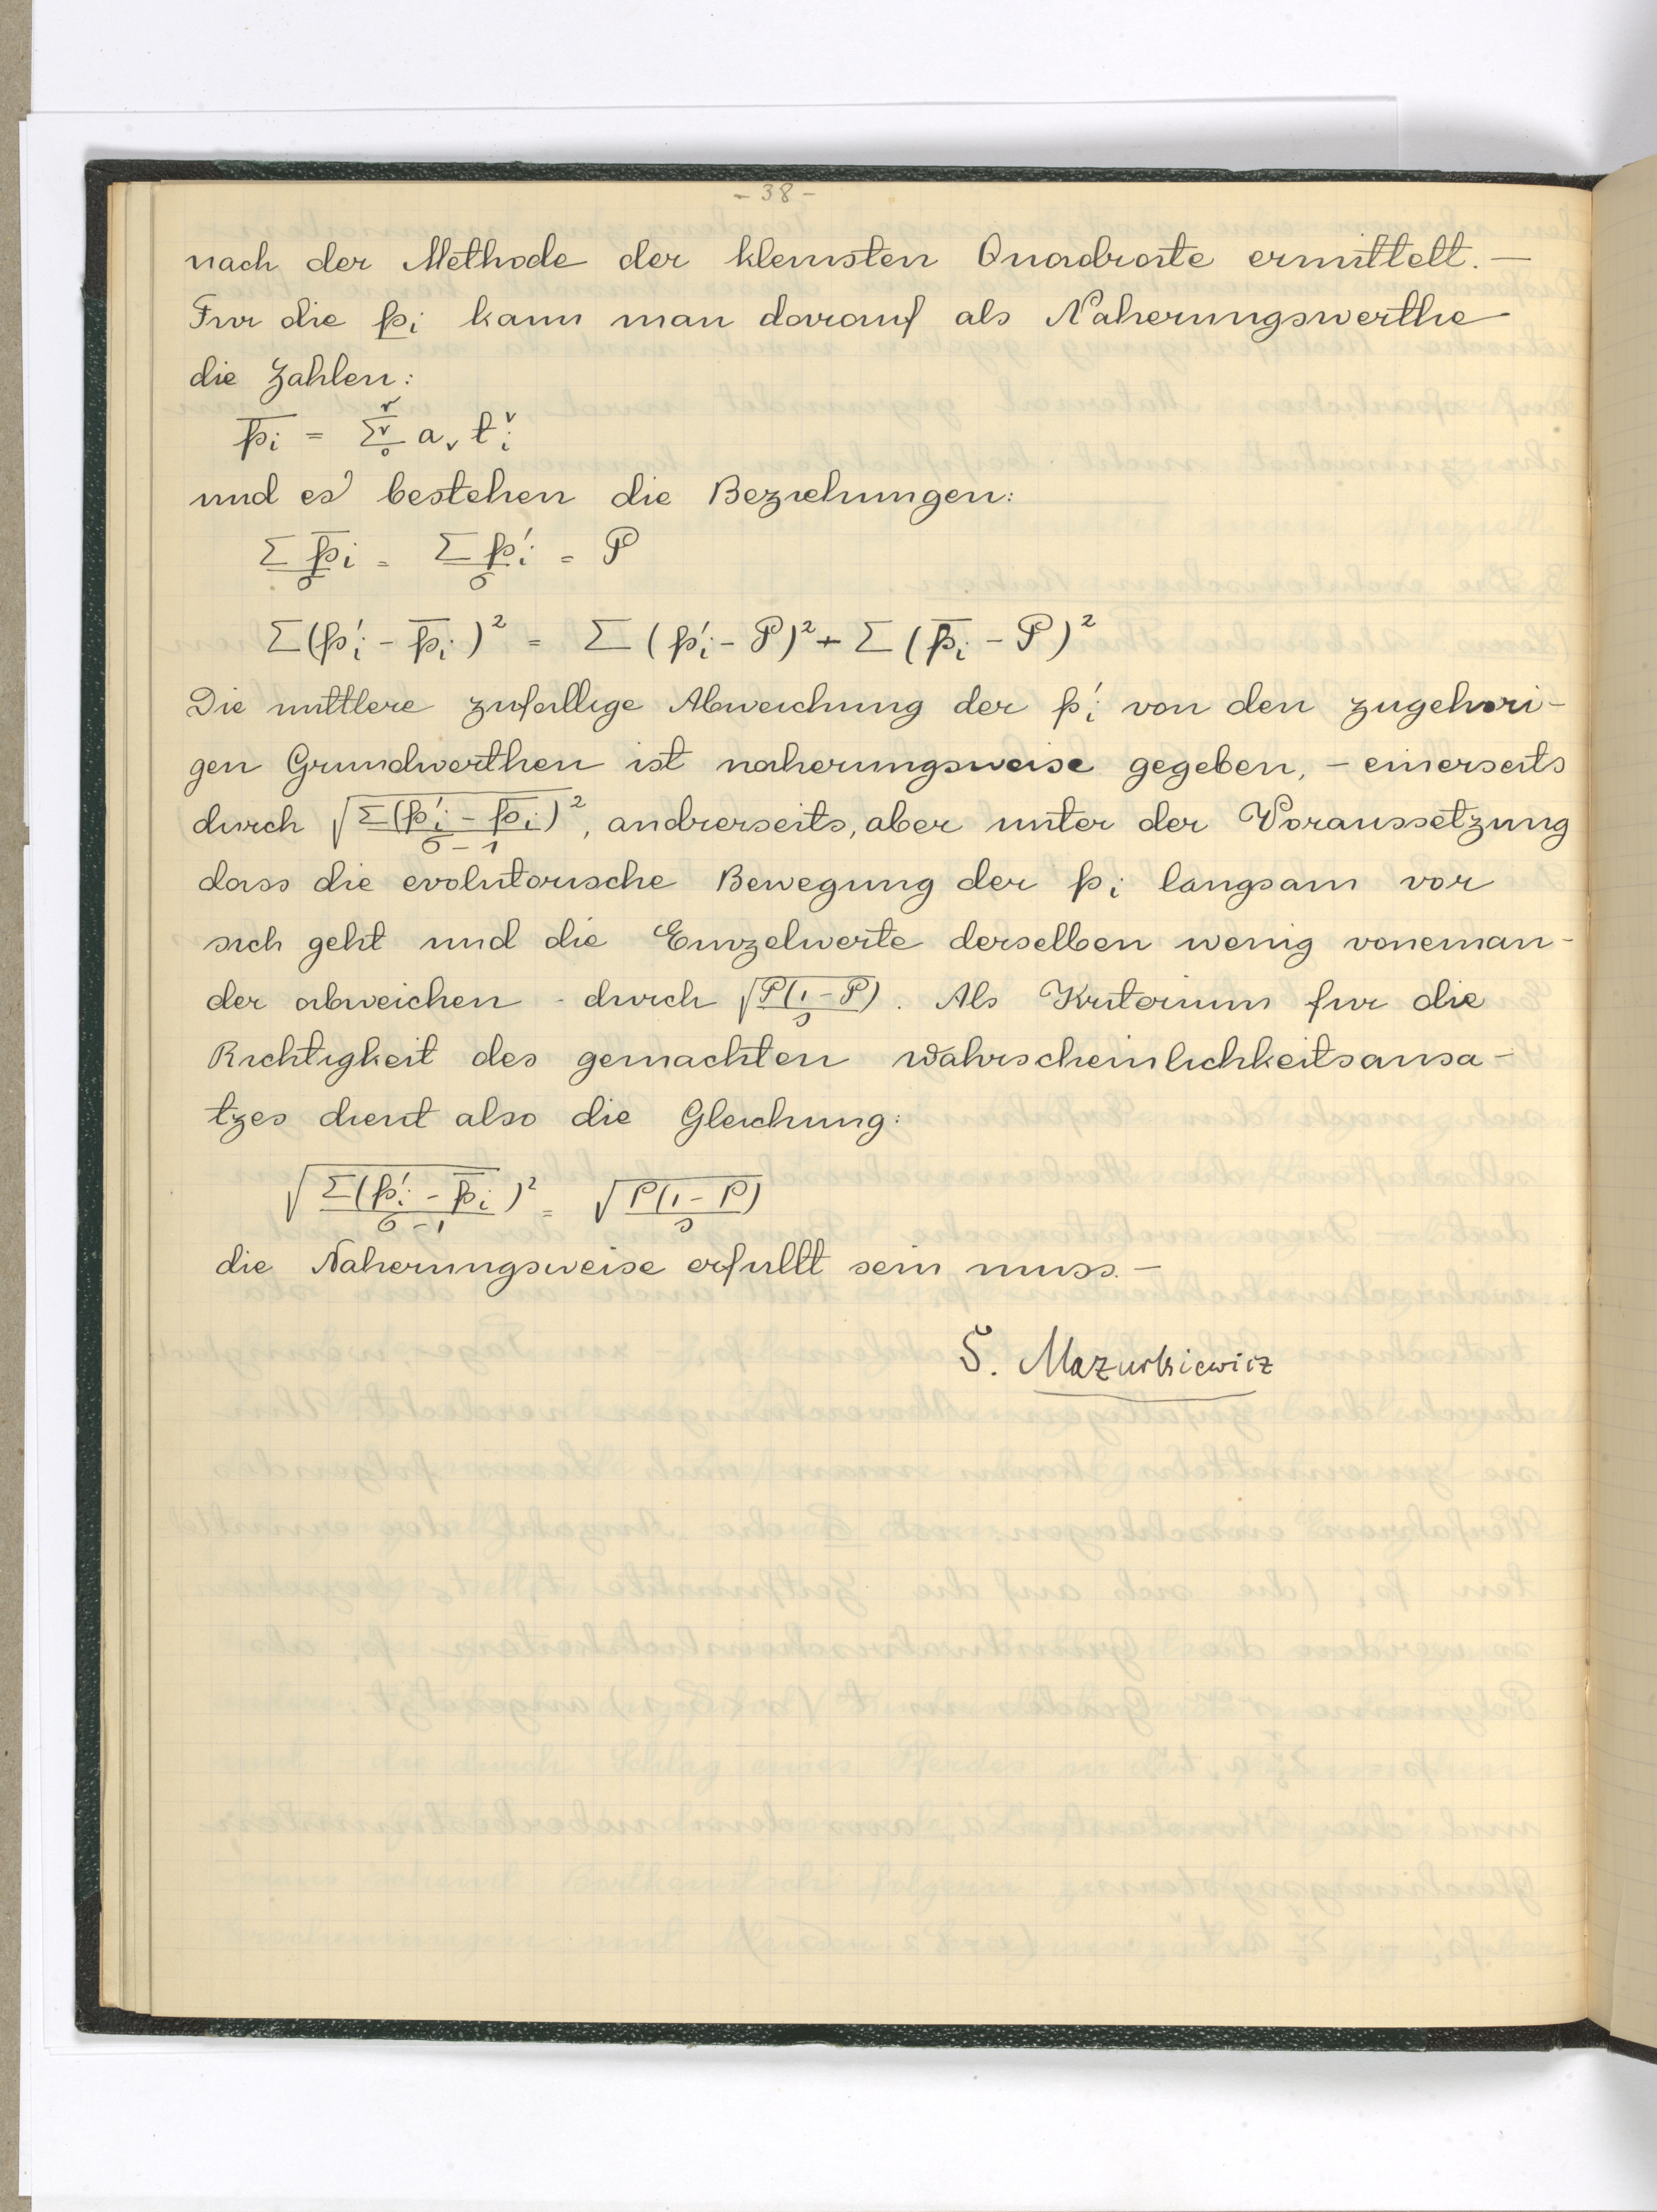 - 38 -
nach der Methode der kleinsten Quadrate ermittelt. —
Fur die p_i kann man darauf als Naherungswerthe
die Zahlen:
p̅_i = Σ_0^r ν a_ν t_i^ν
und es bestehen die Beziehungen:
Σ p̅_i / σ = Σ p'_i / σ = P
Σ(p'_i - p̅_i)² = Σ(p'_i - P)² + Σ(p̅_i - P)²
Die mittlere zufallige Abweichung der p'_i von den zugehori-
gen Grundwerthen ist naherungsweise gegeben, - einerseits
durch √(Σ(p'_i - p̅_i)² / σ - 1), andrerseits, aber unter der Voraussetzung
dass die evolutorische Bewegung der p_i langsam vor
sich geht und die Einzelwerte derselben wenig voneinan-
der abweichen - durch √(P(1 - P) / s). Als Kriterium fur die
Richtigkeit des gemachten Wahrscheinlichkeitsansa-
tzes dient also die Gleichung:
√(Σ(p'_i - p̅_i)² / σ - 1) = √(P(1 - P) / s)
die Naherungsweise erfullt sein muss. —
S. Mazurkiewicz